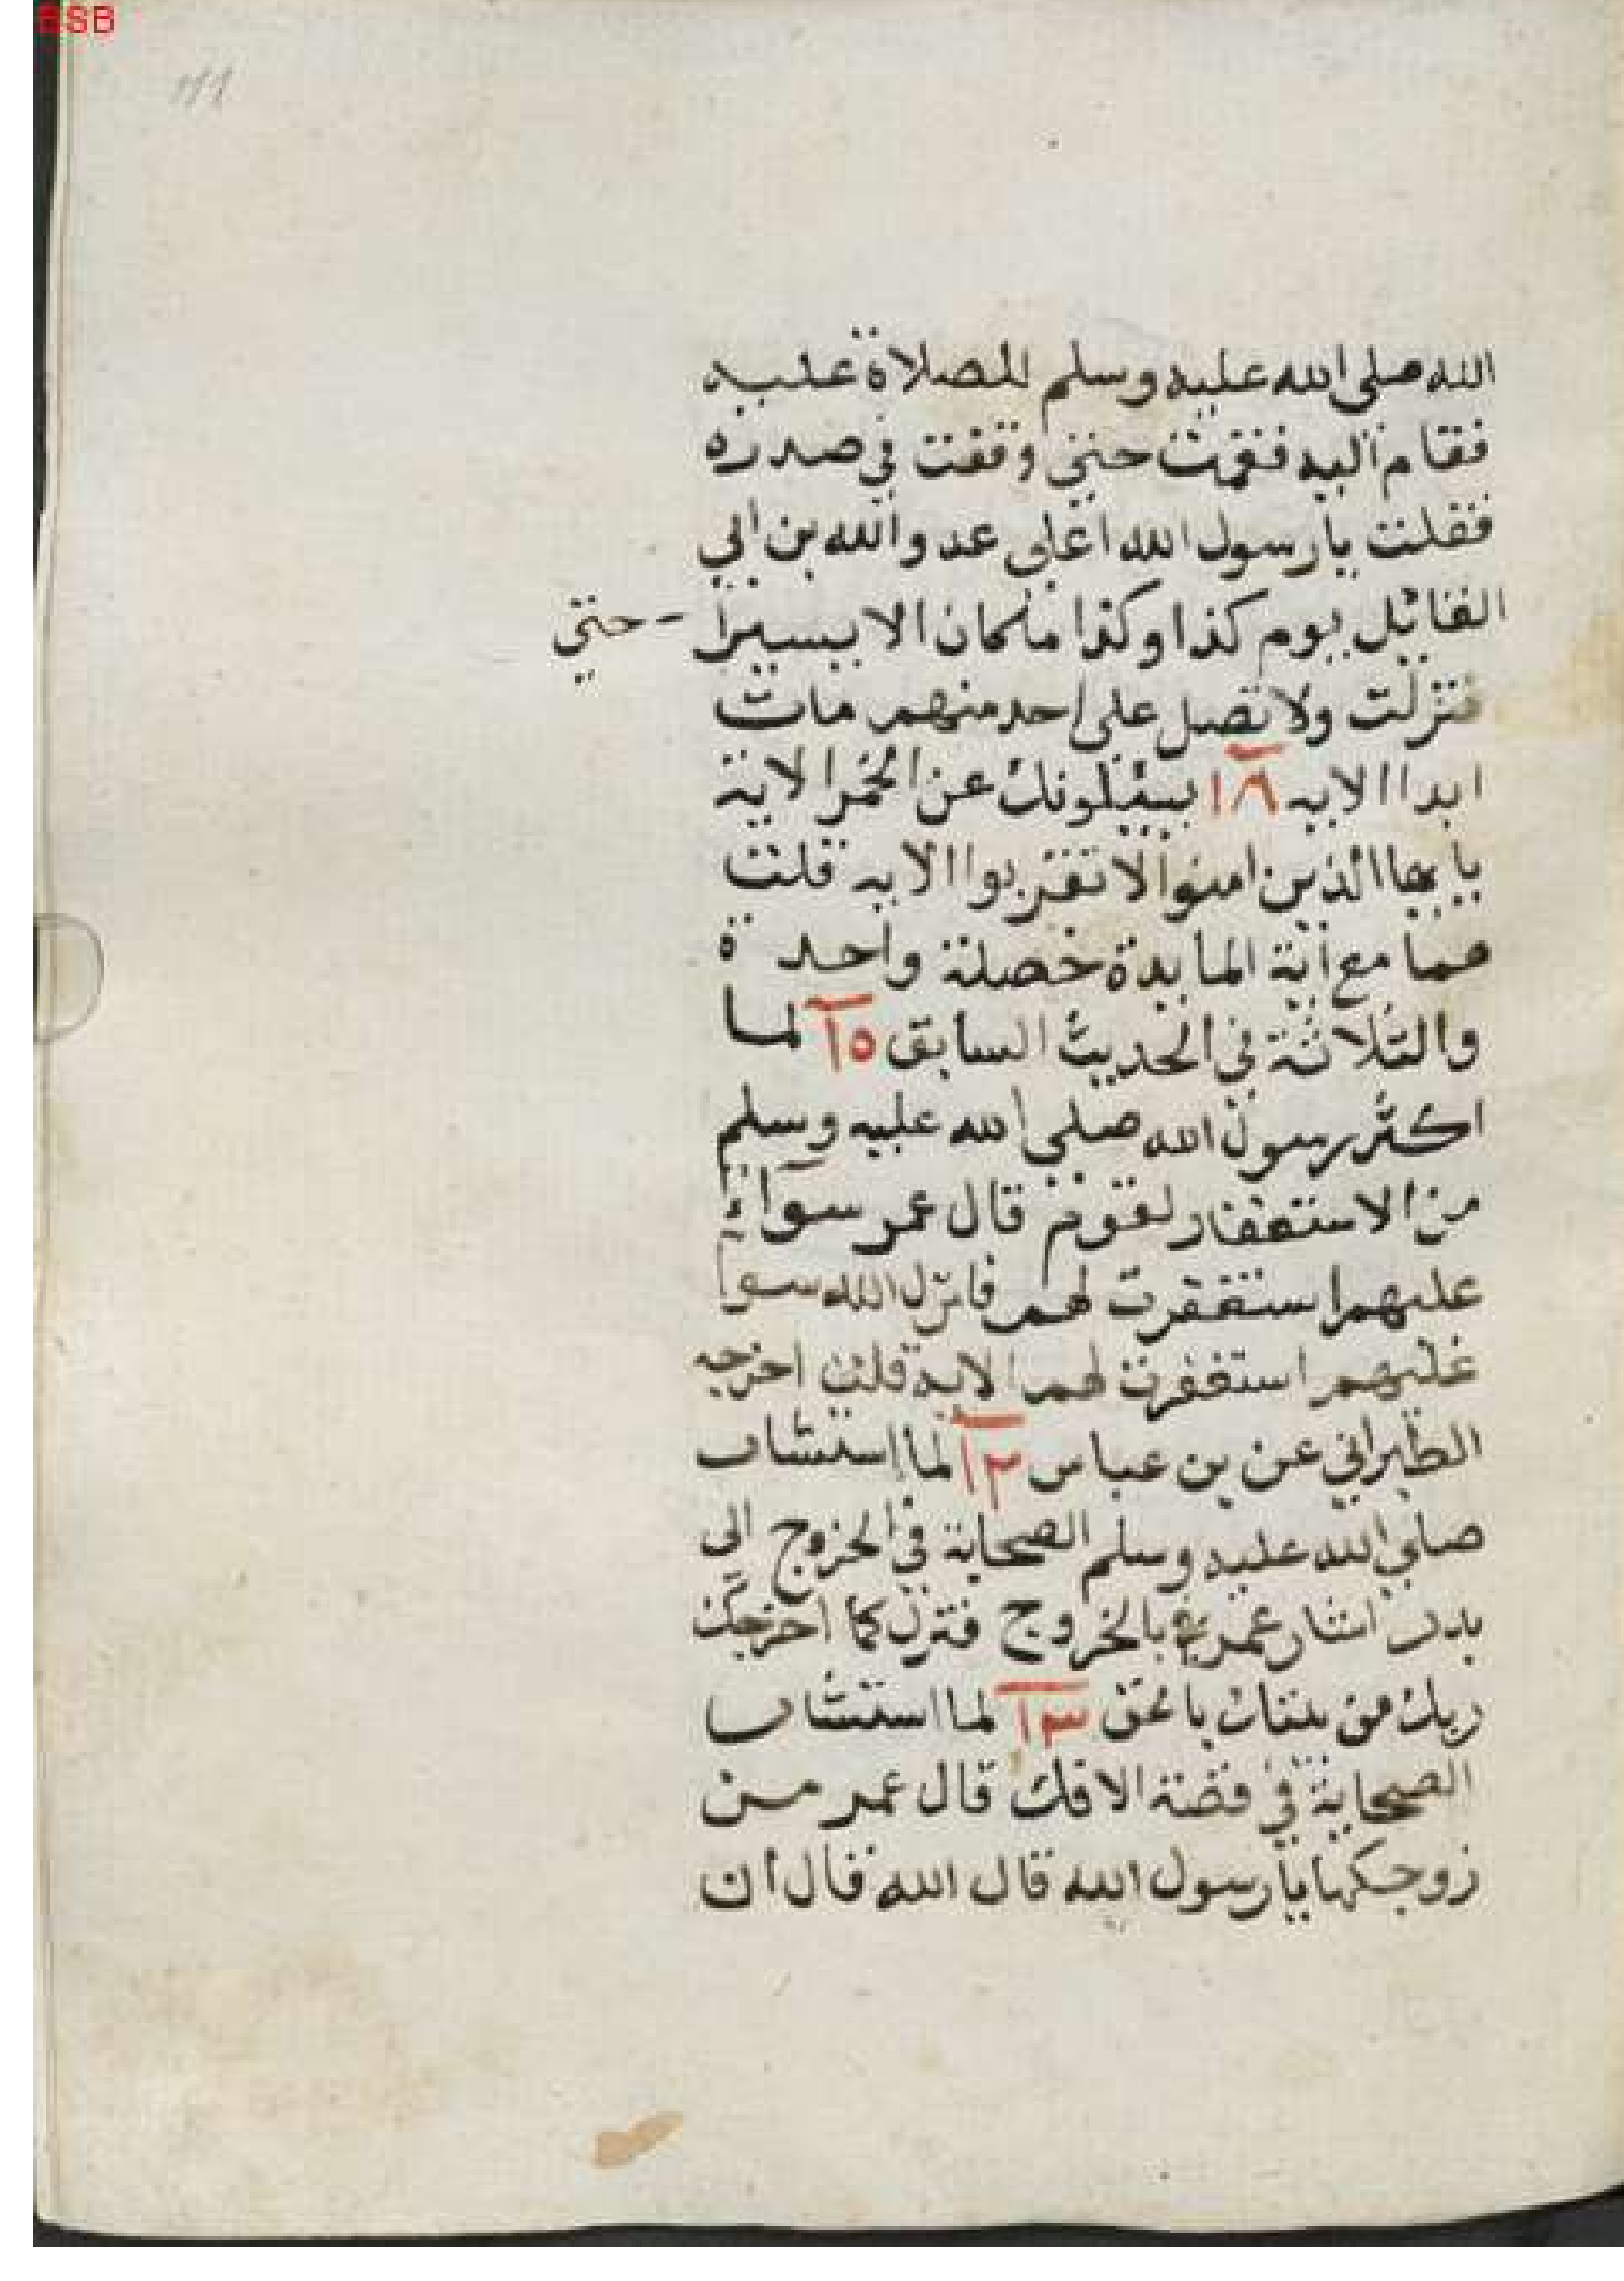 BSB
الله صلى الله عليه وسلم للصلاة عليه
فقام اليه فقمت حتى وقفت في صدره
فقلت يا رسول الله اعلى عدو الله بن ابي
القائل يوم كذا وكذا ما كان الا يسيرا - حتى
نزلت ولا تصل على احد منهم مات
ابدا الايه ١٨ يسئلونك عن الخمر الاية
يايها الذين امنوا لا تقربوا الايه قلت
هما مع اية المايدة خصلة واحدة
والثلاثة في الحديث السابق ١٥ لما
اكثر رسول الله صلى الله عليه وسلم
من الاستغفار لقوم قال عمر سواء
عليهم استغفرت لهم فانزل الله سوا
عليهم استغفرت لهم الاية قلت اخرجه
الطبراني عن بن عباس ١٢ لما استشار
صلى الله عليه وسلم الصحابة في الخروج الى
بدر اشار عمر بالخروج فنزل كما اخرجك
ربك من بيتك بالحق ١٣ لما استشار
الصحابة في قصة الافك قال عمر من
زوجكها يا رسول الله قال الله قال ان